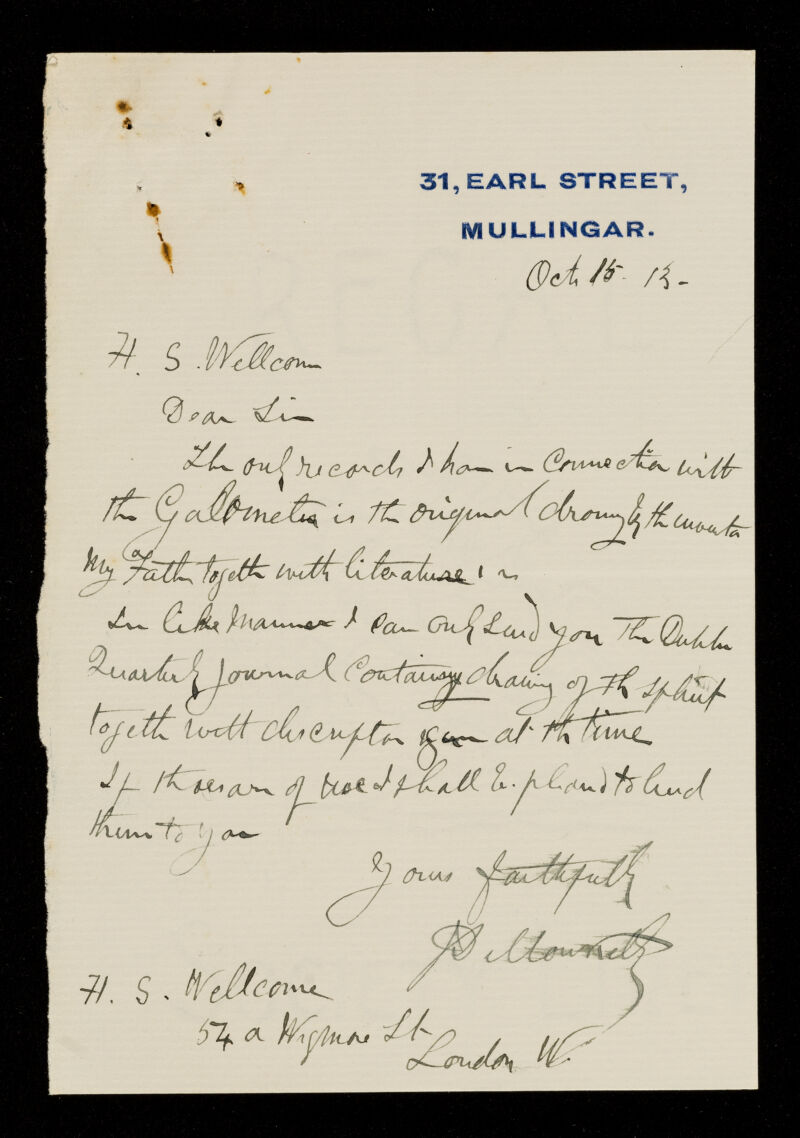 31, EARL STREET,
MULLINGAR.
Oct 15. 13-
H. S. Wellcome
Dear Sir
The only records I have in connection with
the is the original drawing by the inventor
My Father together with literature
In like manner I can only send you the Dublin
Quarterly Journal containing drawing of the splint
together with description given at the time
If these are of use I shall be pleased to lend
them to you
Yours faithfully
H. S. Wellcome
54 a Wigmore St
London W.